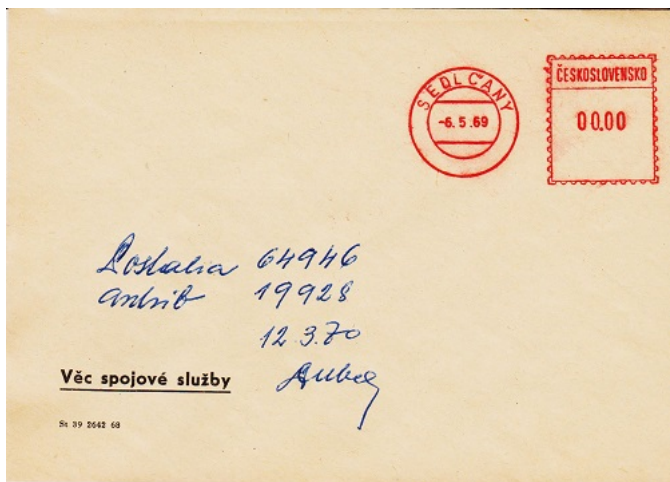 SEDLČANY
-6.5.69
ČESKOSLOVENSKO
00.00
Postalia 64946
19928
12.3.70
Věc spojové služby
St 39 2642 68